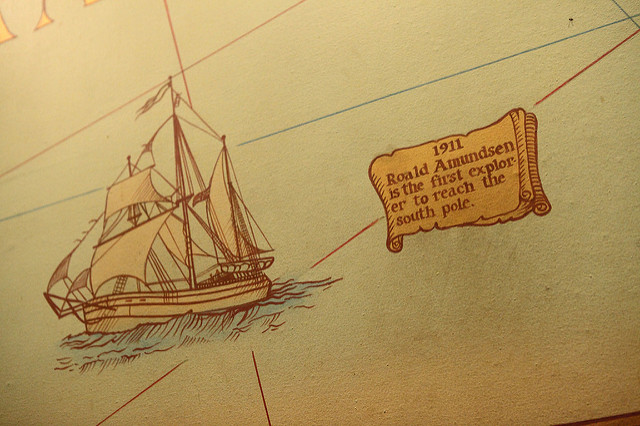 1911
Roald Amundsen
is the first explor-
er to reach the
south pole.